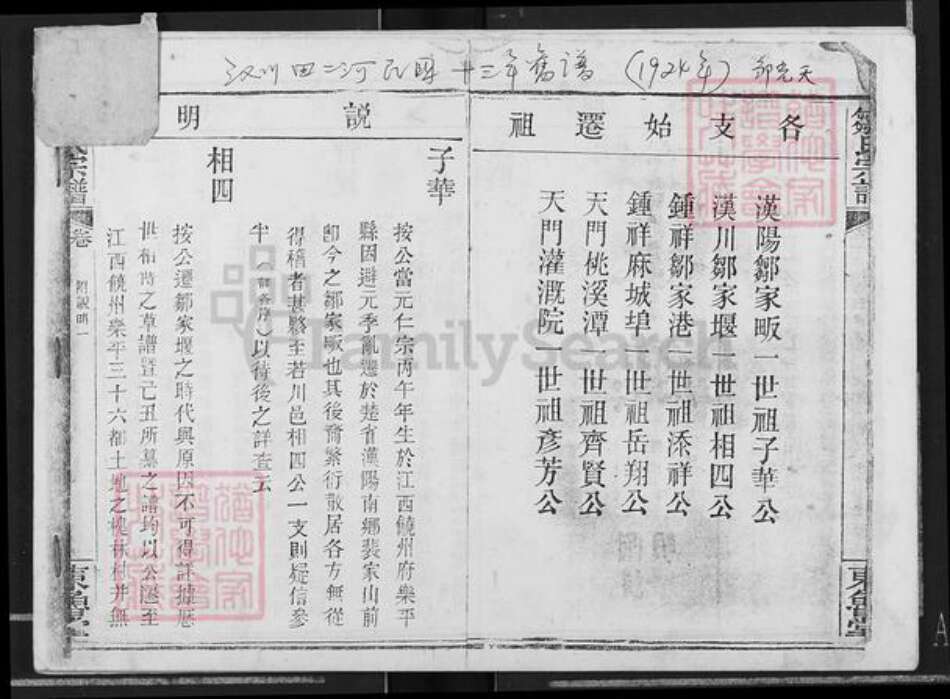 汉川田二河民国廿三年旧谱 (1924年) 邹克天
鄒氏宗譜
東魯堂
各支始遷祖
漢陽鄒家畈一世祖子華公
漢川鄒家堰一世祖相四公
鍾祥鄒家港一世祖添祥公
鍾祥麻城埠一世祖岳翔公
天門桃溪潭一世祖齊賢公
天門灌溉院一世祖彥芳公
説明
子華
按公當元仁宗丙午年生於江西饒州府樂平
縣因避元季亂遷於楚省漢陽南鄉裴家山前
卽今之鄒家畈也其後裔繁衍散居各方無從
得稽者甚夥至若川邑相四公一支則疑信參
半以待後之詳查云
相四
按公遷鄒家堰之時代與原因不可得詳據歷
世相時之草譜暨己丑所纂之譜均以公遷至
江西饒州樂平三十六都土地之槐林村井無
氏宗譜
卷
附說明一
東魯堂
FamilySearch
A